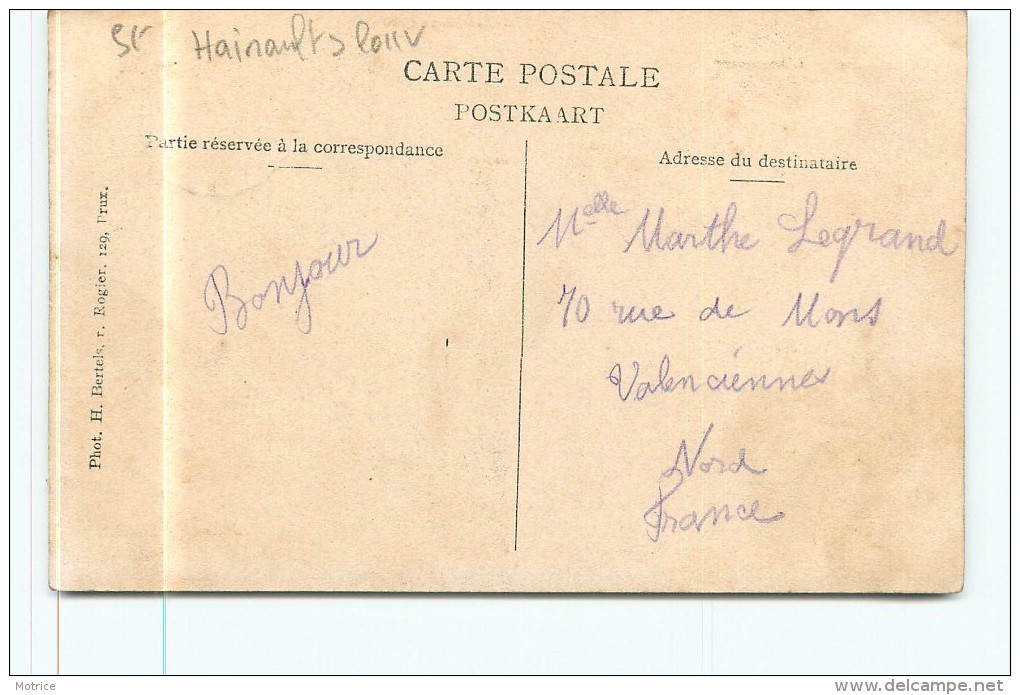 Hainault
CARTE POSTALE
POSTKAART
Partie réservée à la correspondance
Adresse du destinataire
Phot. H. Bertels, r. Rogier, 129, Brux.
Bonjour
Melle Marthe Legrand
70 rue de Mons
Valenciennes
Nord
France
Motrice
delcampe.net